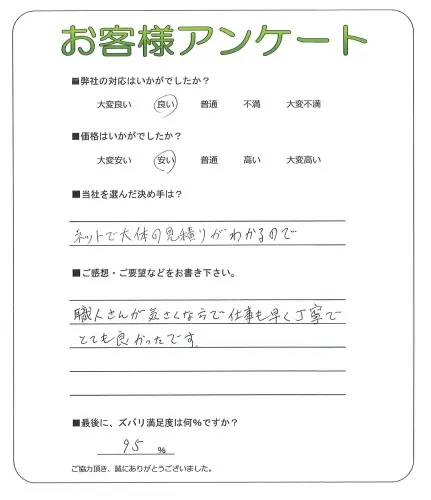 お客様アンケート
■弊社の対応はいかがでしたか？
大変良い 良い 普通 不満 大変不満
■価格はいかがでしたか？
大変安い 安い 普通 高い 大変高い
■当社を選んだ決め手は？
ネットで大体の見積りがわかるので
■ご感想・ご要望などをお書き下さい。
職人さんが気さくな方で仕事も早く丁寧で
とても良かったです。
■最後に、ズバリ満足度は何％ですか？
95 ％
ご協力頂き、誠にありがとうございました。